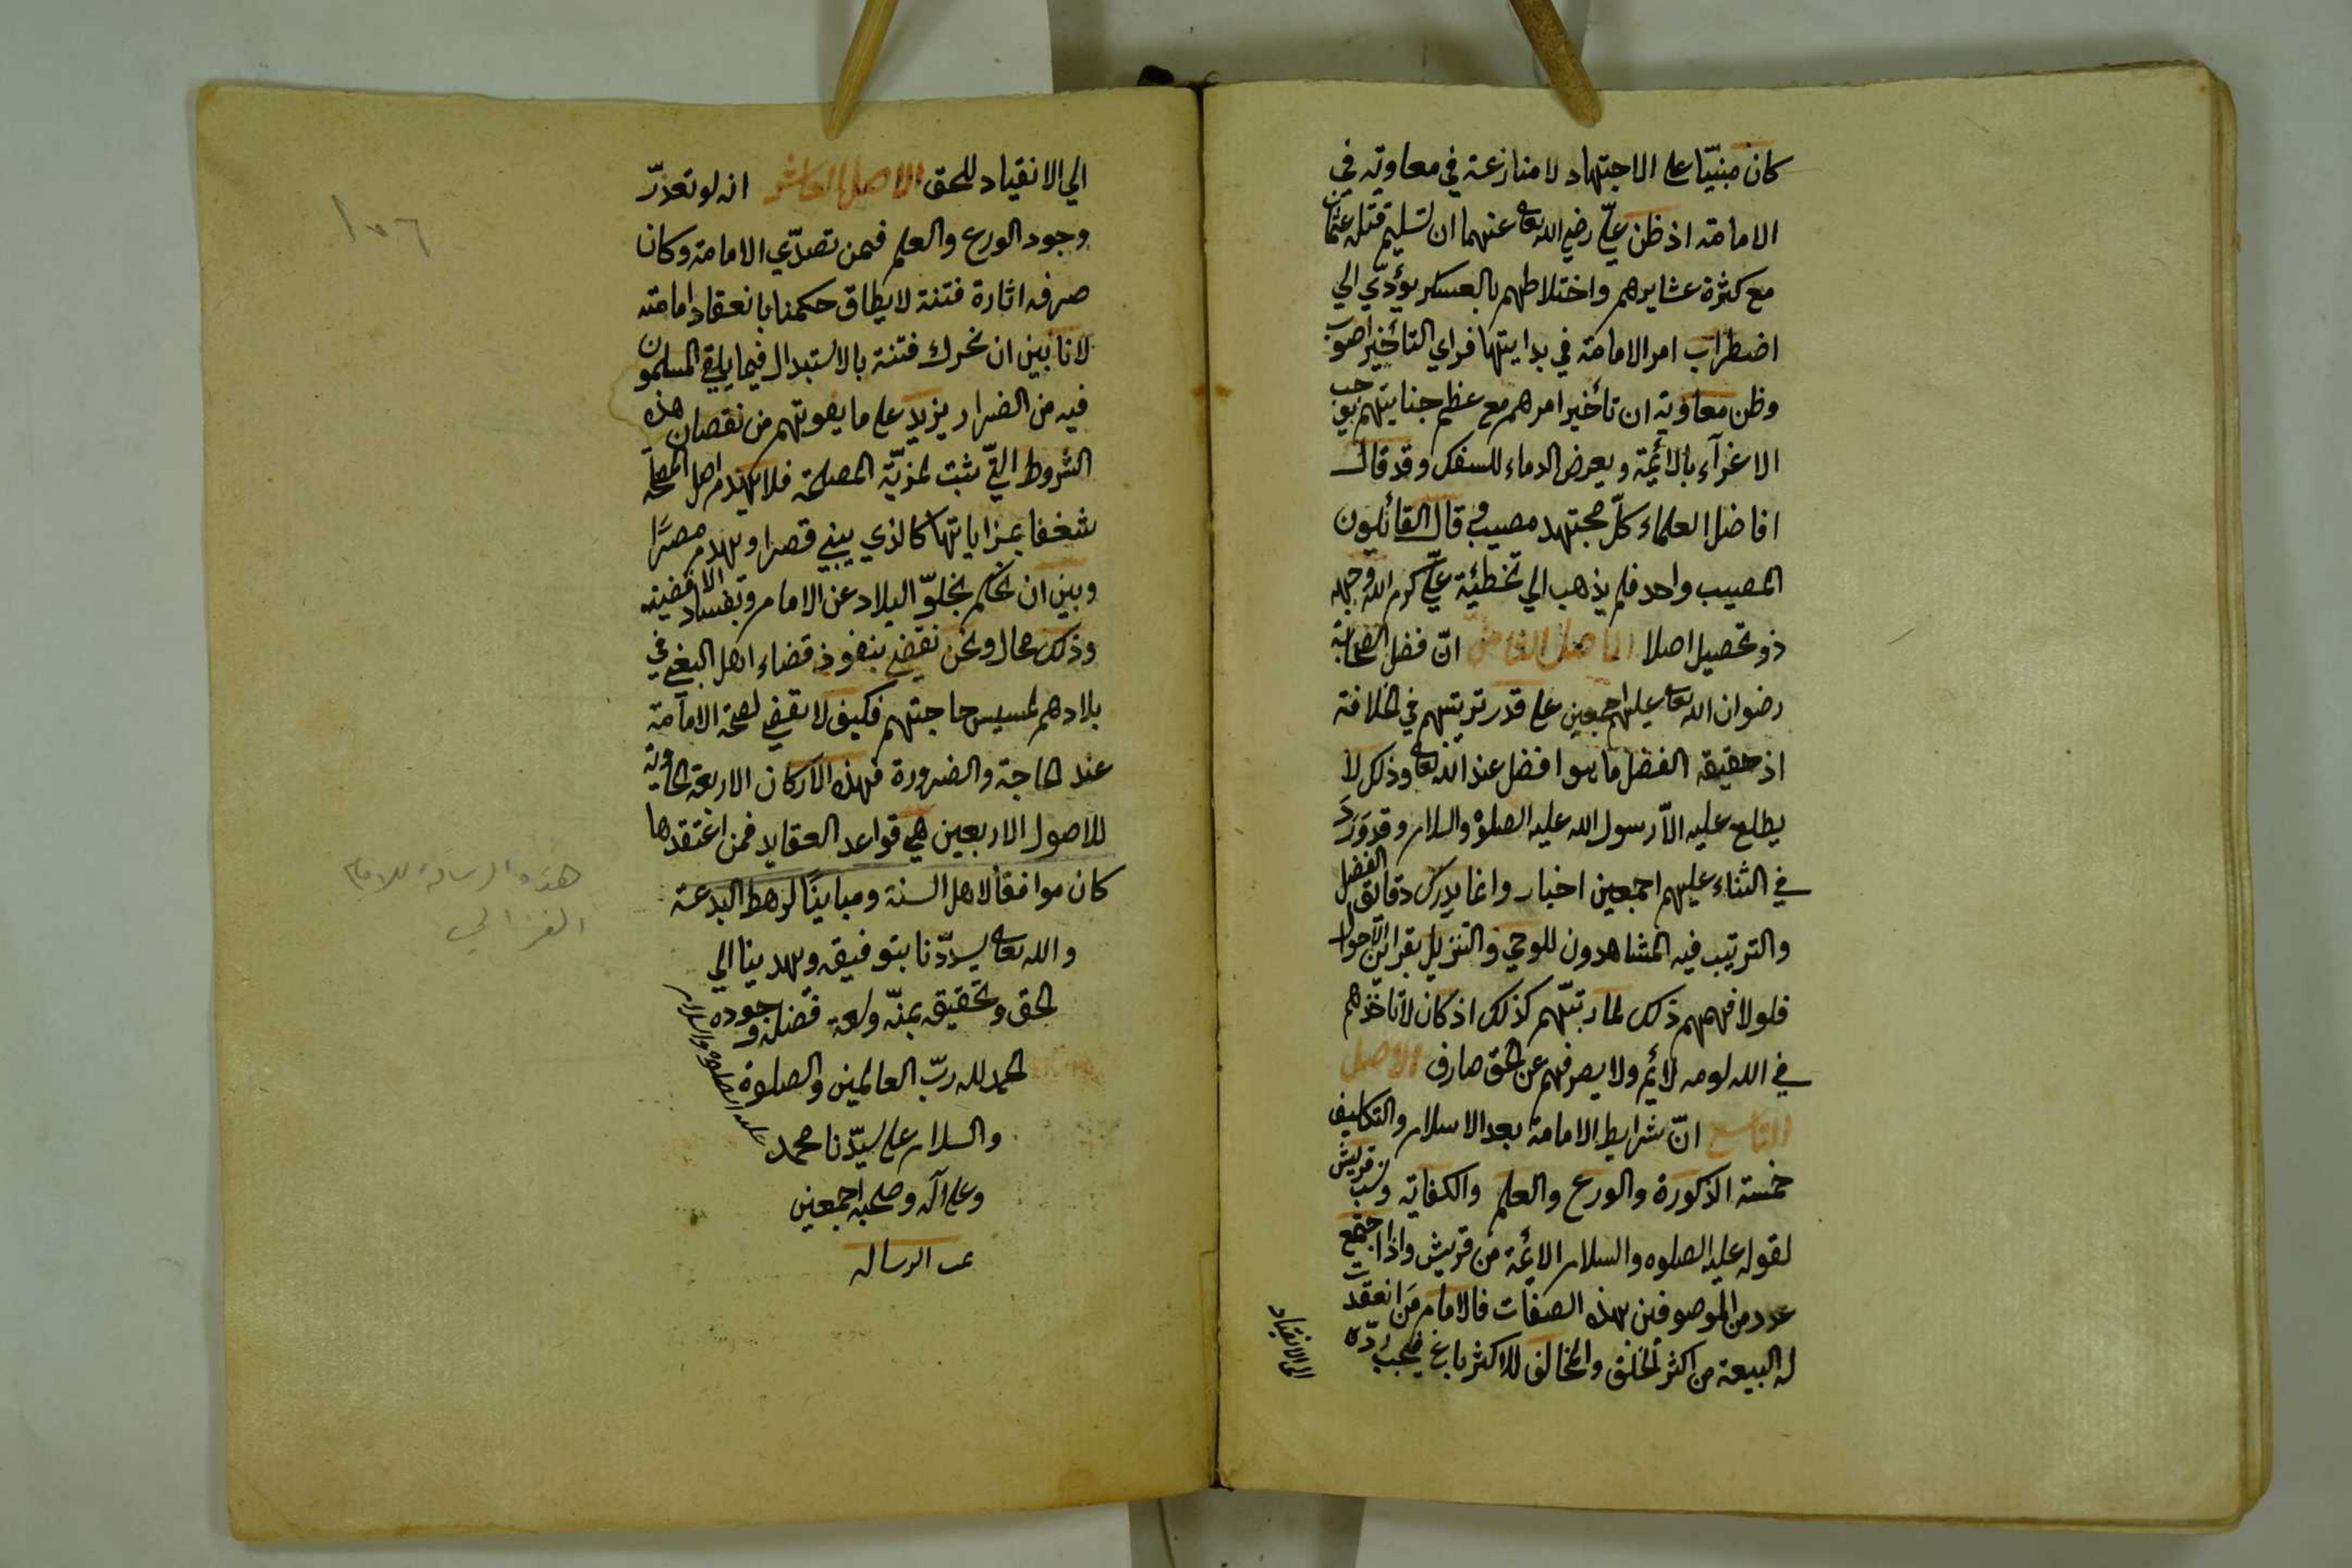 كان مبنيّا على الاجتهاد لا منازعة في معاوية في
الامامة اذ ظن عليّ رضي الله تعالى عنهما ان تسليم قتلة عثمان
مع كثرة عشايرهم واختلاطهم بالعسكر يؤدّي الي
اضطراب امر الامامة في بدايتها فراي التأخير اصوب
وظن معاوية ان تأخير امرهم مع عظم جنايتهم يوجب
الاغرآء بالائمة ويعرض الدماء للسفك وقد قال
افاضل العلماء كلّ مجتهد مصيب وقال القائلون
المصيب واحد فلم يذهب الي تخطئة عليّ كرم الله وجهه
ذو تحصيل اصلا الاصل الثامن انّ فضل الصحابة
رضوان الله تعالى عليهم اجمعين على قدر ترتيبهم في الخلافة
اذ حقيقة الفضل ما هو افضل عند الله تعالى وذلك لا
يطلع عليه الاّ رسول الله عليه الصلوة والسلام وقد وَرَدَ
في الثناء عليهم اجمعين اخبار وانما يدرك دقائق الفضل
والترتيب فيه المشاهدون للوحي والتنزيل بقراين الاحوال
فلولا فهمهم ذلك لما رتبّهم كذلك اذ كان لا تاخذهم
في الله لومه لائم ولا يصرفهم عن الحق صارف الاصل
التاسع انّ شرايط الامامة بعد الاسلام والتكليف
خمسة الذكورة والورع والعلم والكفاية ونسب قريش
لقوله عليه الصلوه والسلام الائمة من قريش واذا اجتمع
عدد من الموصوفين بهذه الصفات فالامام مَن انعقدت
له البيعة من اكثر الخلق والمخالف للاكثر باغ فيجب ردّه
الى الانقياد
الي الانقياد للحق الاصل العاشر انه لو تعذرّ
وجود الورع والعلم فيمن تصدّي الامامة وكان
صرفه اثارة فتنة لا يطاق حكمنا بانعقاد امامته
لانا بين ان نحرك فتنة بالاستبدال فيما يلقي المسلمون
فيه من الضرار يزيد على ما يفوتهم من نقصان هذه
الشروط التيّ يثبت لمزيّة المصلحة فلا يهدم اصل المصلحة
شغفا بمزاياتها كالذي يبني قصرا ويهدم مصرًا
وبين ان نحكم بخلوّ البلاد عن الامام وبفساد الاقضية
وذلك محال ونحن نقضي بنفوذ قضاء اهل البغي في
بلادهم لمسيس حاجتهم فكيف لا نقضي لصحة الامامة
عند الحاجة والضرورة فهذه الاركان الاربعة الحاوية
للاصول الاربعين هي قواعد العقايد فمن اعتقدها
كان موافقًا لاهل السنة ومباينًا لرهط البدعة
والله تعالى يسدّدنا بتوفيقه ويهدينا الي
الحق وتحقيقه بمنّه وسعة فضله وجوده
الحمد لله ربّ العالمين والصلوة
والسلام على سيّدنا محمد
عليه الصلوة والسلام
وعلى آله وصحبه اجمعين
تمت الرساله
١٥٦
هذه الرسالة للامام
الغزالي